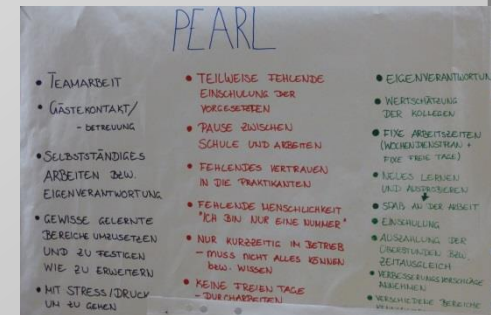 PEARL
• TEAMARBEIT
• GÄSTEKONTAKT/
- BETREUUNG
• SELBSTSTÄNDIGES
ARBEITEN BZW.
EIGENVERANTWORTUNG
• GEWISSE GELERNTE
BEREICHE UMZUSETZEN
UND ZU FESTIGEN
WIE ZU ERWEITERN
• MIT STRESS/DRUCK
UM ZU GEHEN
• TEILWEISE FEHLENDE
EINSCHULUNG DER
VORGESETZTEN
• PAUSE ZWISCHEN
SCHULE UND ARBEITEN
• FEHLENDES VERTRAUEN
IN DIE PRAKTIKANTEN
• FEHLENDE MENSCHLICHKEIT
"ICH BIN NUR EINE NUMMER"
• NUR KURZZEITIG IM BETRIEB
- MUSS NICHT ALLES KÖNNEN
BZW. WISSEN
• KEINE FREIEN TAGE
- DURCHARBEITEN
• EIGENVERANTWORTUN
• WERTSCHÄTZUNG
DER KOLLEGEN
• FIXE ARBEITSZEITEN
(WOCHENDIENSTPLAN +
FIXE FREIE TAGE)
• NEUES LERNEN
UND AUSPROBIEREN
• SPAß AN DER ARBEIT
• EINSCHULUNG
• AUSZAHLUNG DER
ÜBERSTUNDEN BZW.
ZEITAUSGLEICH
• VERBESSERUNGSVORSCHLÄGE
ANNEHMEN
• VERSCHIEDENE BEREICHE